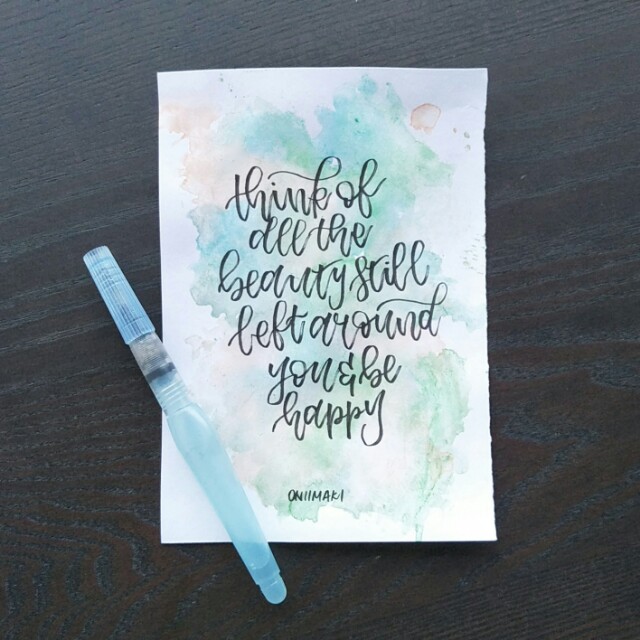 think of
all the
beauty still
left around
you & be
happy
ONIIMAKI